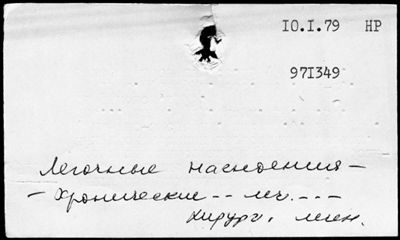 10.I.79 НР
971349
Легочные нагноения –
– Хронические -- леч. ---
хирург. лечен.